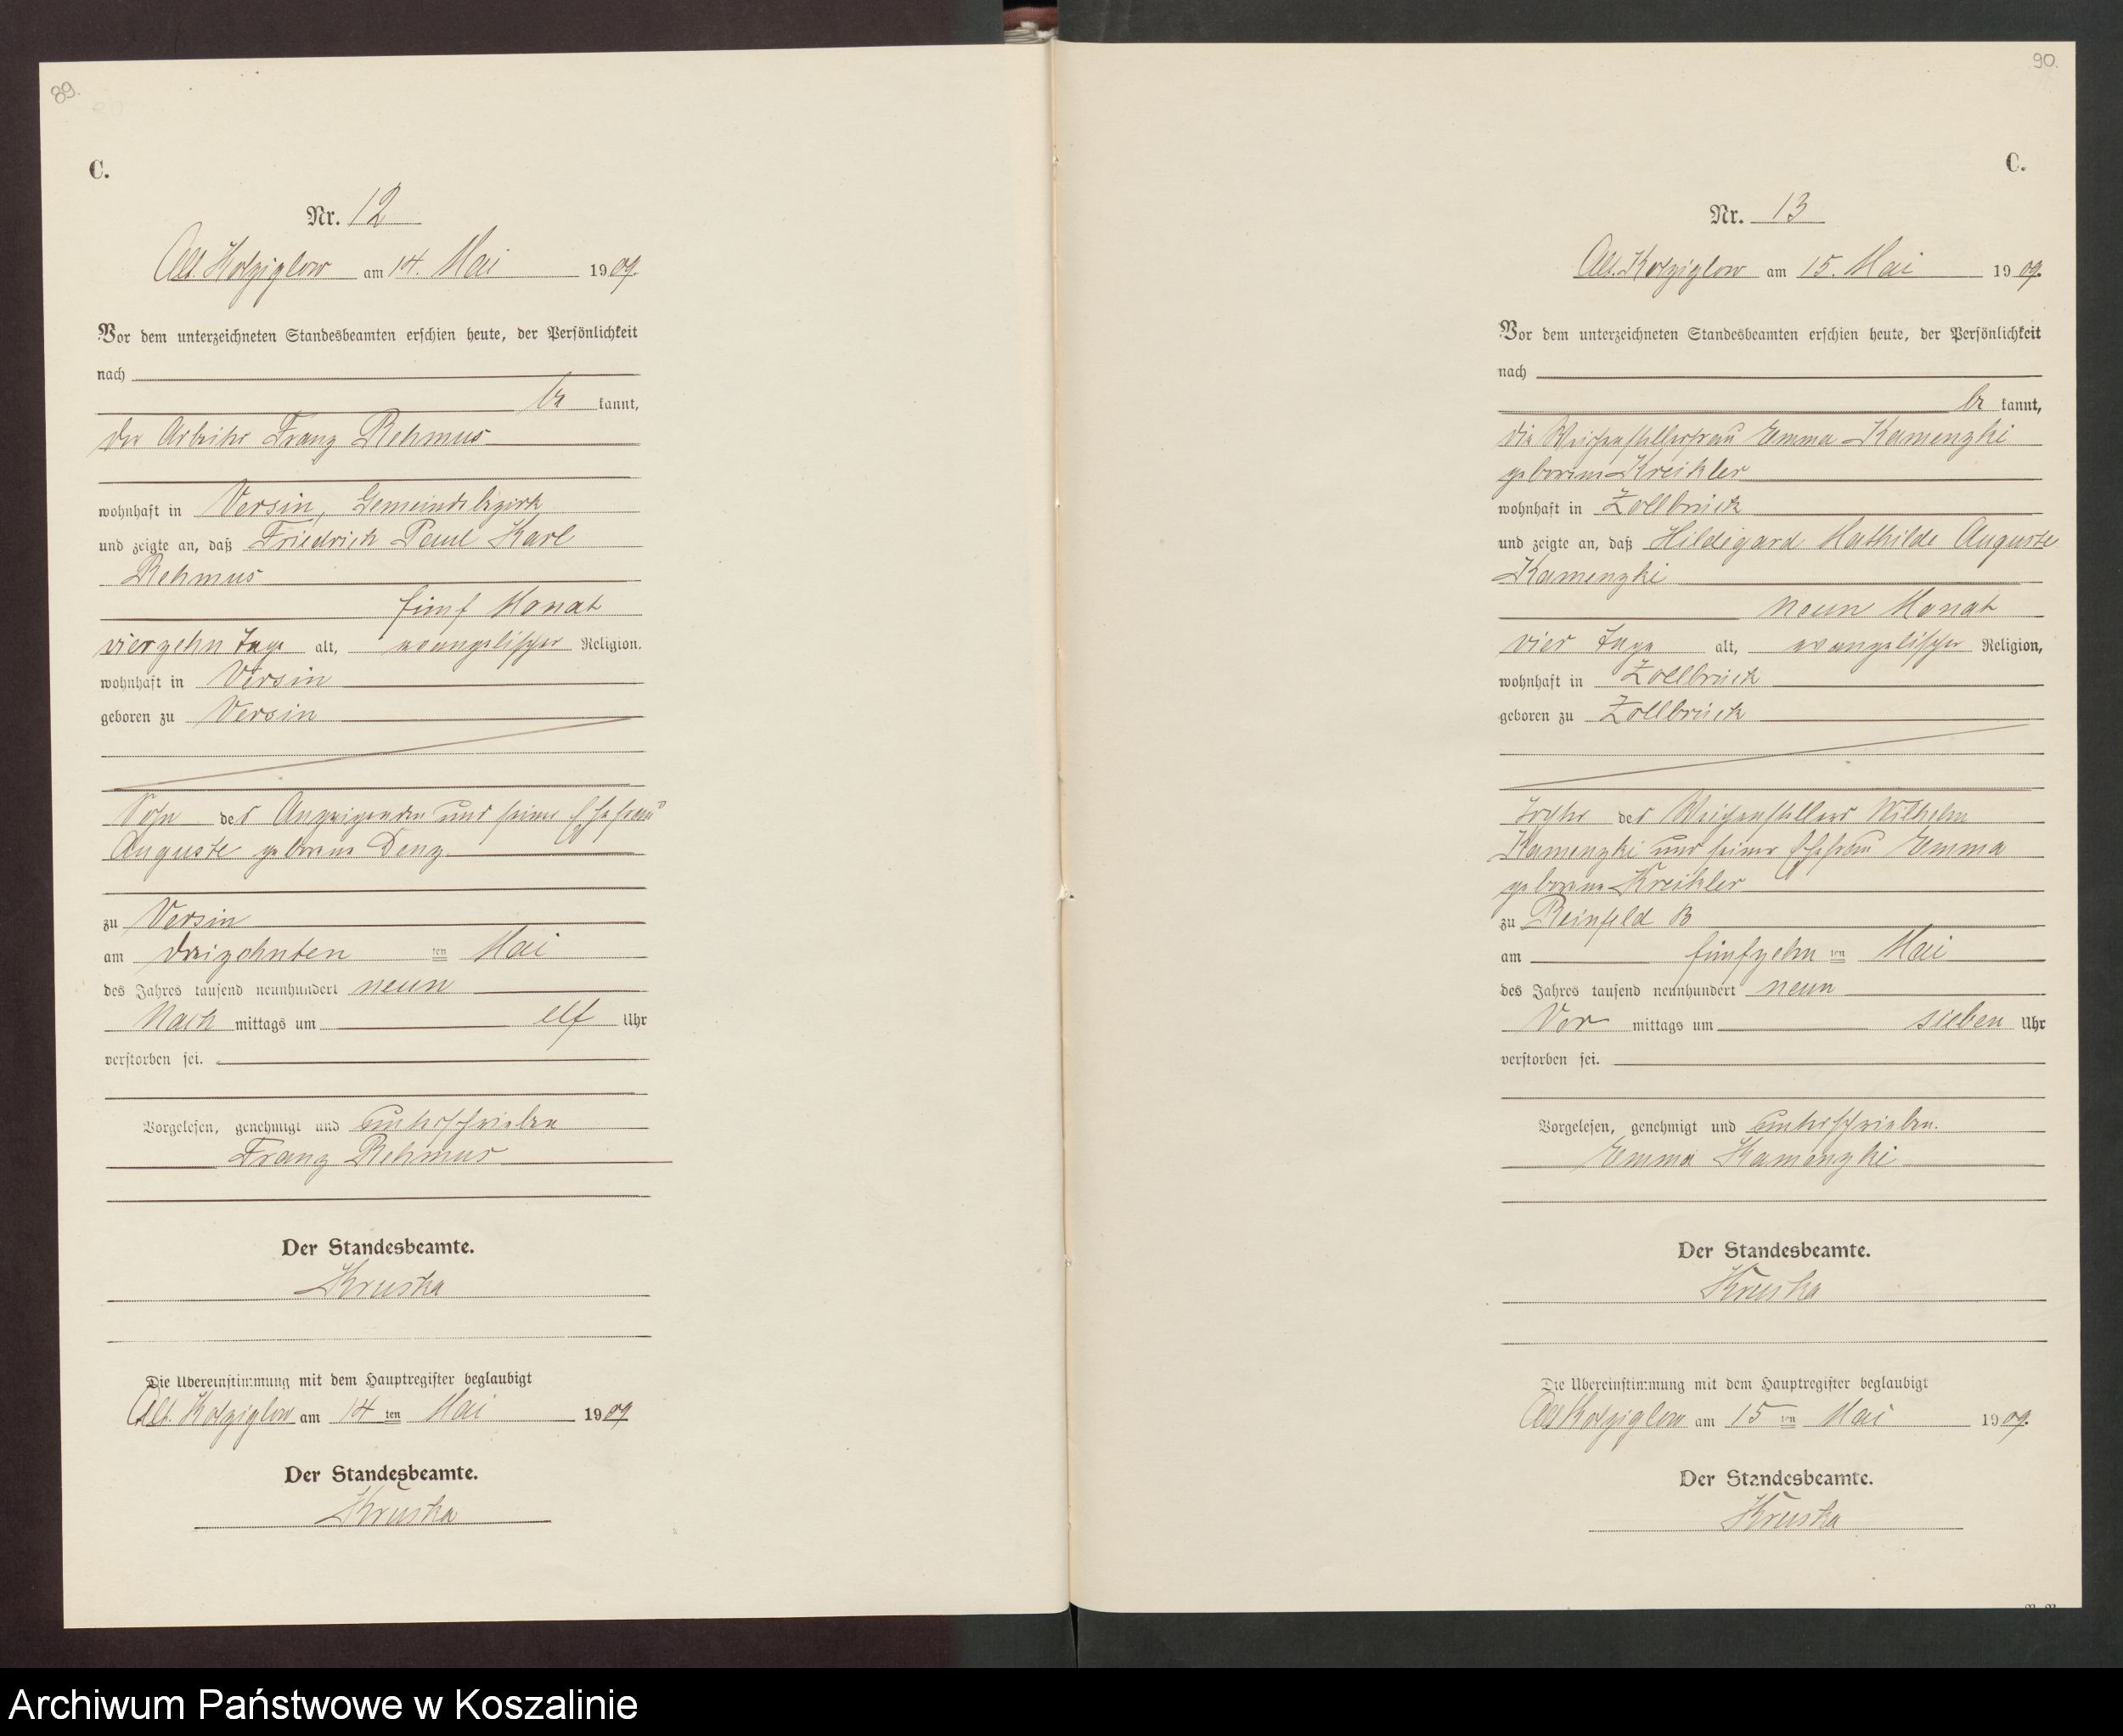 89.
C.
Nr. 12
Alt. Kolziglow am 14. Mai 1909.
Vor dem unterzeichneten Standesbeamten erschien heute, der Persönlichkeit
nach
be kannt,
der Arbeiter Franz Rehmus
wohnhaft in Versin, Gemeindebezirk
und zeigte an, daß Friedrich Paul Karl
Rehmus
fünf Monat
vierzehn Tage alt, evangelischer Religion,
wohnhaft in Versin
geboren zu Versin
Sohn des Anzeigenden und seiner Ehefrau
Auguste geborene Denz
zu Versin
am dreizehnten ten Mai
des Jahres tausend neunhundert neun
Nach mittags um elf Uhr
verstorben sei.
Vorgelesen, genehmigt und unterschrieben
Franz Rehmus
Der Standesbeamte.
Kruska
Die Übereinstimmung mit dem Hauptregister beglaubigt
Alt. Kolziglow am 14 ten Mai 1909
Der Standesbeamte.
Kruska
90.
C.
Nr. 13
Alt. Kolziglow am 15. Mai 1909.
Vor dem unterzeichneten Standesbeamten erschien heute, der Persönlichkeit
nach
be kannt,
die Weichenstellerfrau Emma Kamenzki
geborene Kreikler
wohnhaft in Zollbrück
und zeigte an, daß Hildegard Mathilde Auguste
Kamenzki
neun Monat
vier Tage alt, evangelischer Religion,
wohnhaft in Zollbrück
geboren zu Zollbrück
Tochter des Weichenstellers Wilhelm
Kamenzki und seiner Ehefrau Emma
geborene Kreikler
zu Reinfeld B
am fünfzehn ten Mai
des Jahres tausend neunhundert neun
Vor mittags um sieben Uhr
verstorben sei.
Vorgelesen, genehmigt und unterschrieben.
Emma Kamenzki
Der Standesbeamte.
Kruska
Die Übereinstimmung mit dem Hauptregister beglaubigt
Alt Kolziglow am 15 ten Mai 1909.
Der Standesbeamte.
Kruska
Archiwum Państwowe w Koszalinie